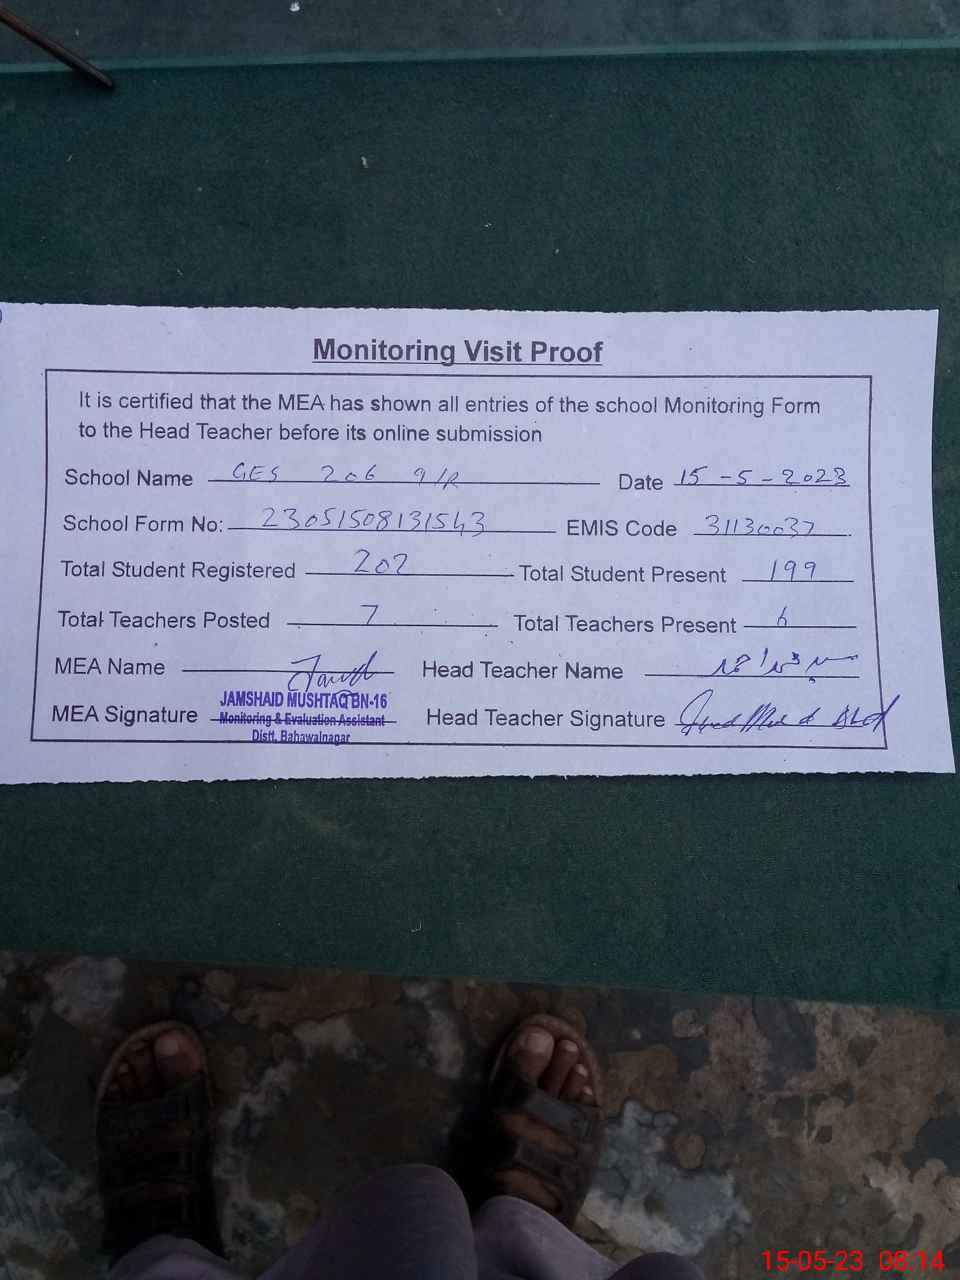 Monitoring Visit Proof
It is certified that the MEA has shown all entries of the school Monitoring Form
to the Head Teacher before its online submission
School Name GES 206 9/R Date 15-5-2023
School Form No: 23051508131543 EMIS Code 31130037
Total Student Registered 202 Total Student Present 199
Total Teachers Posted 7 Total Teachers Present 6
MEA Name Head Teacher Name
JAMSHAID MUSHTAQ BN-16
MEA Signature Monitoring & Evaluation Assistant Head Teacher Signature
Distt. Bahawalnagar
15-05-23 08:14